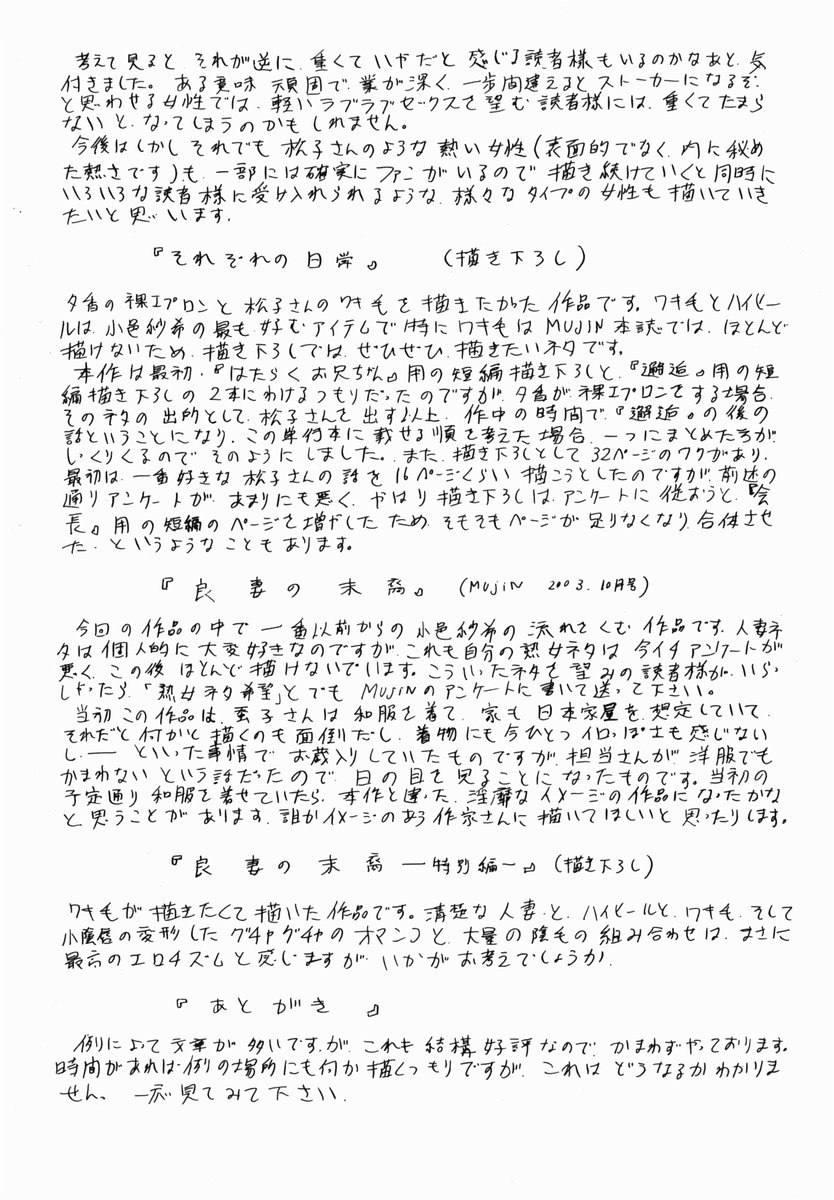 考えて見ると それが逆に、重くていやだと 感じる読者様もいるのかなあと、気
付きました。ある意味 頑固で、業が深く、一歩間違えるとストーカーになるぞ
と思わせる女性では、軽いラブラブセックスを望む読者様には、重くてたまら
ないと、なってしまうのかもしれません。
今後はしかし それでも 松子さんのような 熱い女性(表面的でなく、内に秘め
た熱さです)も、一部には確実にファンがいるので 描き続けていくと同時に
いろいろな読者様に受け入れられるような、様々なタイプの女性も描いていき
たいと思います。
『それぞれの日常』 (描き下ろし)
夕香の裸エプロンと 松子さんのワキ毛を描きたかった作品です。ワキ毛とハイヒー
ルは、小邑紗希の最も好むアイテムで 特にワキ毛はMUJIN本誌では、ほとんど
描けないため、描き下ろしでは、ぜひぜひ、描きたいネタです。
本作は最初、『はたらくお兄ちゃん』用の短編描き下ろしと、『邂逅』用の短
編描き下ろしの 2本にわけるつもりだったのですが、夕香が、裸エプロンをする場合、
そのネタの出所として、松子さんを出す以上、作中の時間で、『邂逅』の後の
話ということになり、この単行本に載せる順を考えた場合、一つにまとめた方が、
しっくりくるので そのようにしました。また、描き下ろしとして32ページのワクがあり、
最初は、一番好きな松子さんの話を16ページくらい描こうとしたのですが、前述の
通りアンケートが、あまりにも悪く、やはり描き下ろしは、アンケートに従おうと、『会
長』用の短編のページを増やしたため、そもそもページが足りなくなり、合体させ
た、というようなこともあります。
『良妻の末裔』 (MUJIN 2003.10月号)
今回の作品の中で 一番以前からの小邑紗希の流れをくむ作品です。人妻ネ
タは個人的に大変好きなのですが、これも自分の熟女ネタは 今イチアンケートが
悪く、この後 ほとんど描けないでいます。こういったネタを望みの読者様が、いらっ
しゃったら、「熟女ネタ希望」とでもMUJINのアンケートに書いて送って下さい。
当初この作品は、子さんは 和服を着て、家も日本家屋を想定していて、
それだと何かと描くのも面倒だし、着物にも今ひとつイロっぽさも感じない
し、── といった事情で お蔵入りしていたものですが、担当さんが、洋服でも
かまわないという話だったので、日の目を見ることになったものです。当初の
予定通り和服を着せていたら、本作と違った、淫靡なイメージの作品になったかな
と思うことがあります。誰かイメージのある作家さんに描いてほしいと思ったりします。
『良妻の末裔 ―特別編―』(描き下ろし)
ワキ毛が描きたくて描いた作品です。清楚な人妻と、ハイヒールと、ワキ毛、そして
小陰唇の変形したグチャグチャのオマンコと、大量の陰毛の組み合わせは、まさに
最高のエロチズムと感じますが、いかがお考えでしょうか。
『あとがき 』
例によって文章が多いですが、これも結構好評なので、かまわずやっております。
時間があれば例の場所にも何か描くつもりですが、これは どうなるかわかりま
せん。一応見てみて下さい。